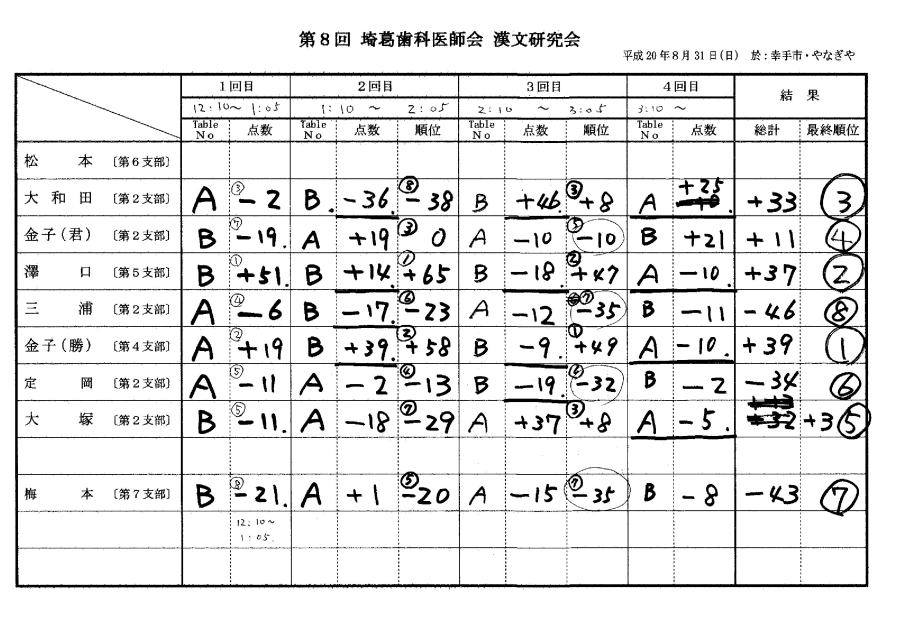 第8回 埼葛歯科医師会 漢文研究会
平成20年8月31日(日) 於:幸手市・やなぎや
1回目 2回目 3回目 4回目 結果
12:10~1:05 1:10 ~ 2:05 2:10 ~ 3:05 3:10 ~
Table No 点数 Table No 点数 順位 Table No 点数 順位 Table No 点数 総計 最終順位
松 本 〔第6支部〕
大和田 〔第2支部〕 A ③ -2 B. -36. ⑧ -38 B +46. ③ +8 A +25 . +33 ③
金子(君) 〔第2支部〕 B ⑦ -19. A +19 ③ 0 A -10 ⑤ -10 B +21 +11 ④
澤 口 〔第5支部〕 B ① +51. B +14. ① +65 B -18. ② +47 A -10. +37 ②
三 浦 〔第2支部〕 A ④ -6 B -17. ⑥ -23 A -12 ⑦ -35 B -11 -46 ⑧
金子(勝) 〔第4支部〕 A ② +19 B +39. ② +58 B -9. ① +49 A -10. +39 ①
定 岡 〔第2支部〕 A ⑤ -11 A -2 ④ -13 B -19. ⑥ -32 B -2 -34 ⑥
大 塚 〔第2支部〕 B ⑤ -11. A -18 ⑦ -29 A +37 ③ +8 A -5. +3 ⑤
梅 本 〔第7支部〕 B ⑧ -21. A +1 ⑤ -20 A -15 ⑦ -35 B -8 -43 ⑦
12:10~
1:05.